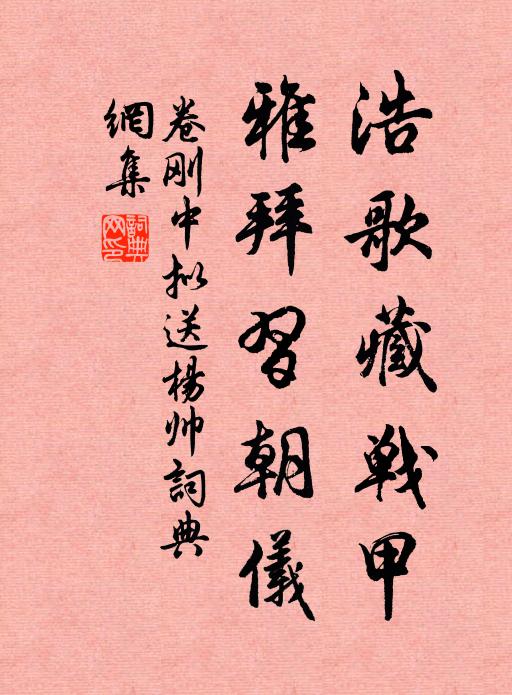 浩歌藏戰甲
雅拜習朝儀
卷刚中拟送楊帅詞典
網集
詞典网印